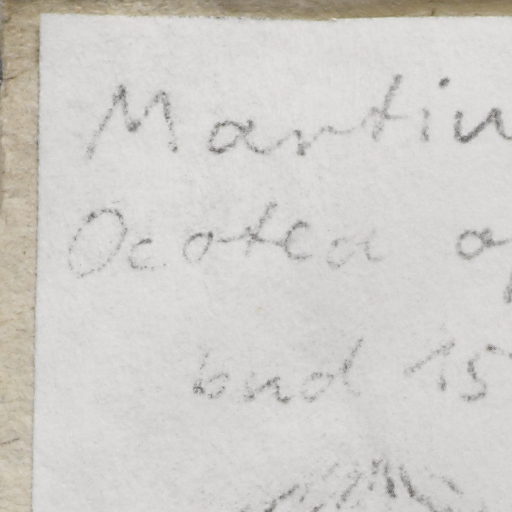 Martiu
Ocotea ap
bud 15